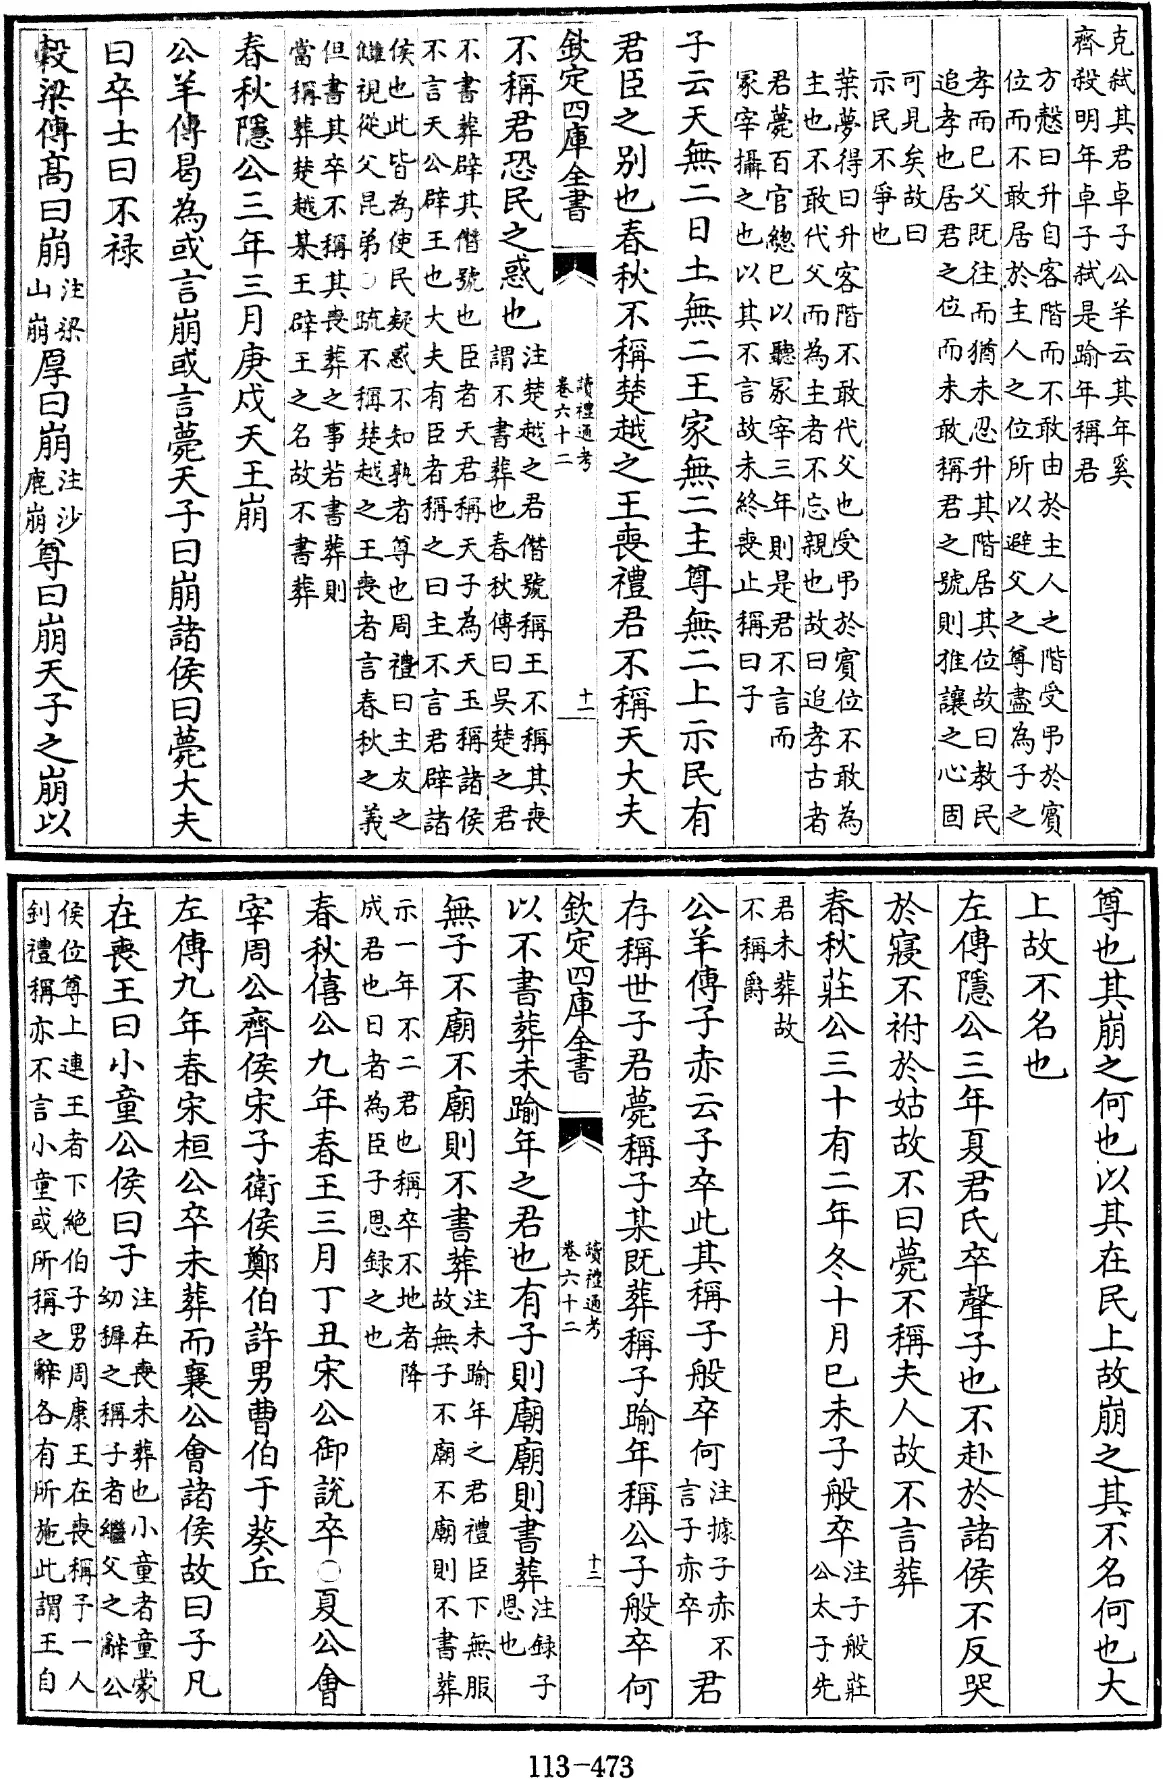 克弑其君卓子公羊云其年奚
齊殺明年卓子弑是踰年稱君
方慤曰升自客階而不敢由於主人之階受弔於賓
位而不敢居於主人之位所以避父之尊盡為子之
孝而已父既往而猶未忍升其階居其位故曰教民
追孝也居君之位而未敢稱君之號則推讓之心固
可見矣故曰
示民不爭也
葉夢得曰升客階不敢代父也受弔於賓位不敢為
主也不敢代父而為主者不忘親也故曰追孝古者
君薨百官總已以聽冢宰三年則是君不言而
冢宰攝之也以其不言故未終喪止稱曰子
子云天無二日土無二王家無二主尊無二上示民有
君臣之别也春秋不稱楚越之王喪禮君不稱天大夫
欽定四庫全書
讀禮通考
卷六十二
十一
不稱君恐民之惑也注楚越之君僭號稱王不稱其喪
謂不書葬也春秋傳曰吳楚之君
不書葬辟其僭號也臣者天君稱天子為天王稱諸侯
不言天公辟王也大夫有臣者稱之曰主不言君辟諸
侯也此皆為使民疑惑不知孰者尊也周禮曰主友之
讎視從父昆弟○疏不稱楚越之王喪者言春秋之義
但書其卒不稱其喪葬之事若書葬則
當稱葬楚越某王辟王之名故不書葬
春秋隱公三年三月庚戌天王崩
公羊傳曷為或言崩或言薨天子曰崩諸侯曰薨大夫
曰卒士曰不禄
穀梁傳高曰崩注梁山崩厚曰崩注沙鹿崩尊曰崩天子之崩以
尊也其崩之何也以其在民上故崩之其不名何也大
上故不名也
左傳隱公三年夏君氏卒聲子也不赴於諸侯不反哭
於寢不祔於姑故不曰薨不稱夫人故不言葬
春秋莊公三十有二年冬十月已未子般卒注子般莊
公太子先
君未葬故
不稱爵
公羊傳子赤云子卒此其稱子般卒何注據子赤不言子赤卒君
存稱世子君薨稱子某既葬稱子踰年稱公子般卒何
欽定四庫全書
讀禮通考
卷六十二
十二
以不書葬未踰年之君也有子則廟廟則書葬注録子
恩也
無子不廟不廟則不書葬注未踰年之君禮臣下無服
故無子不廟不廟則不書葬
示一年不二君也稱卒不地者降
成君也日者為臣子恩録之也
春秋僖公九年春王三月丁丑宋公御說卒○夏公會
宰周公齊侯宋子衛侯鄭伯許男曹伯于葵丘
左傳九年春宋桓公卒未葬而襄公會諸侯故曰子凡
在喪王曰小童公侯曰子注在喪未葬也小童者童蒙
幼穉之稱子者繼父之辭公
侯位尊上連王者下絶伯子男周康王在喪稱予一人
釗禮稱亦不言小童或所稱之辭各有所施此謂王自
113-473